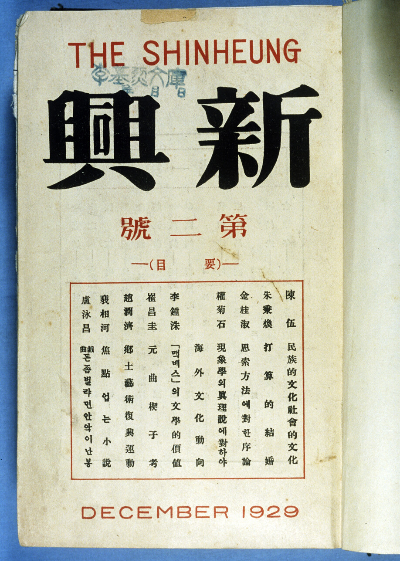 THE SHINHEUNG
新興
第二號
—(要目)—
陳伍 民族的文化社會的文化
朱秉煥 打算的結婚
金桂淑 思索方法에對한序論
權菊石 現象學의眞理說에對하야
海外文化動向
李鍾洙 「맥베스」의文學的價値
崔昌圭 元曲楔子考
趙潤濟 鄕土藝術復興運動
裴相河 焦點업는小說
盧泳昌 戱曲돈줌벌랴면안악이난봉
DECEMBER 1929